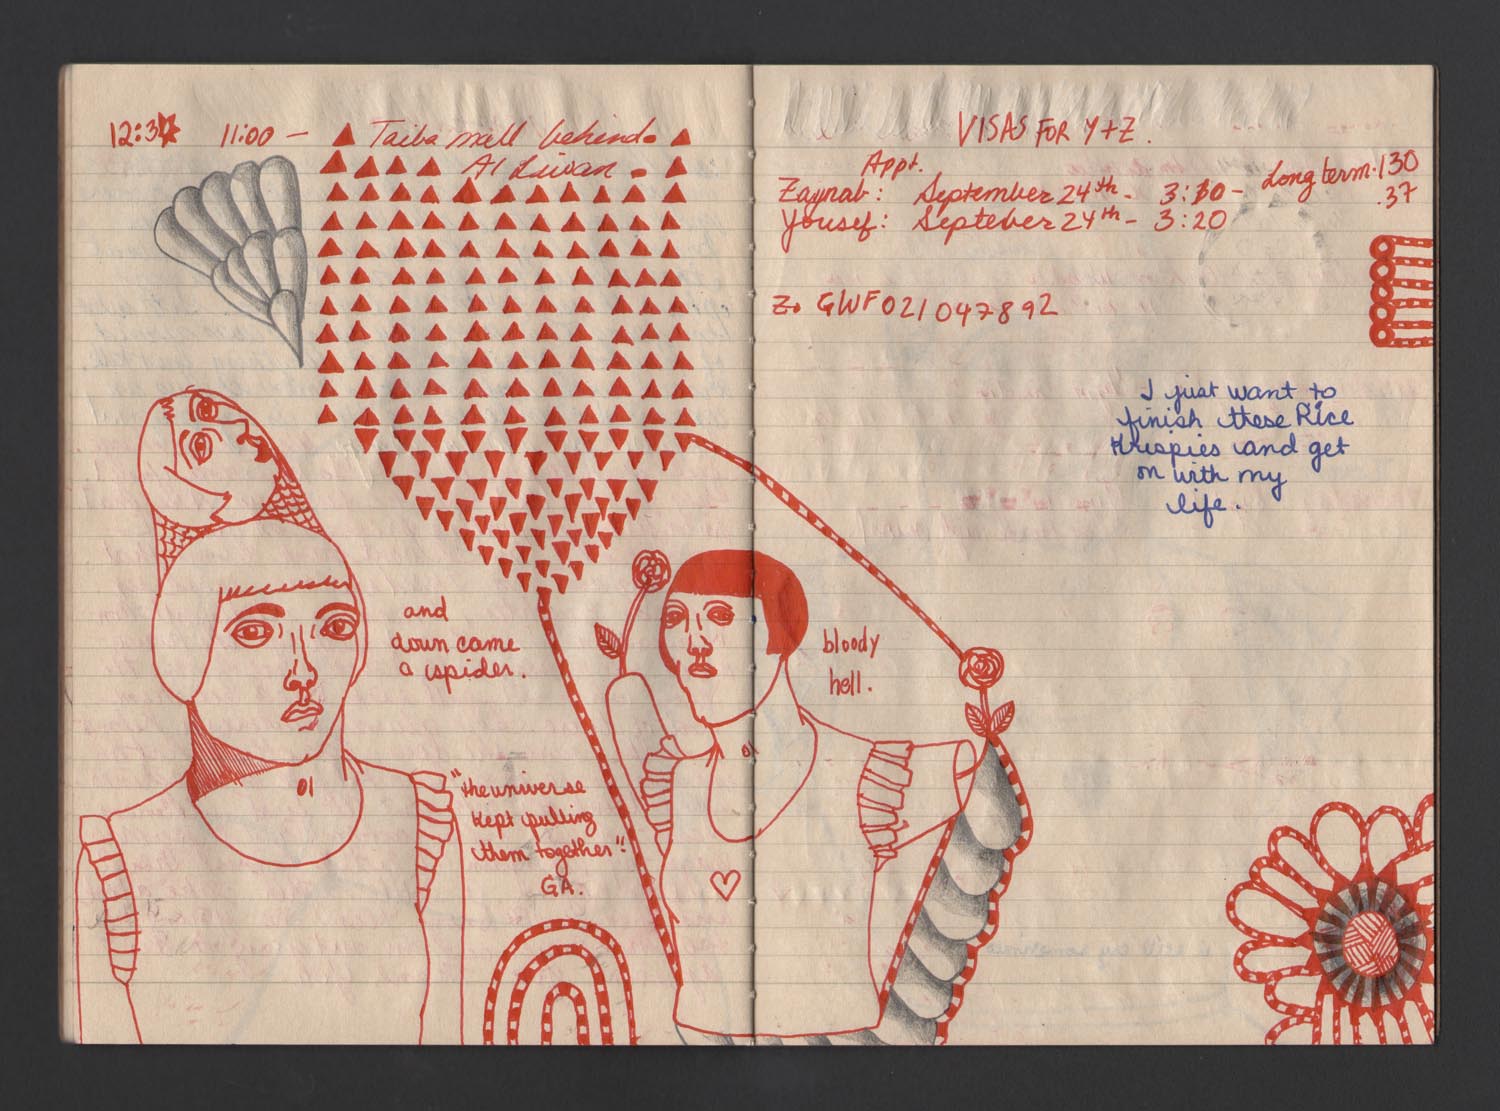 12:3
11:00 – Taiba mall behind
Al Liwan
and
down came
a spider.
"the universe
kept pulling
them together".
GA.
01
01
bloody
hell.
VISAS FOR Y+Z.
Appt.
Zaynab: September 24th - 3:10 - Long term.130
.37
Yousef: Septeber 24th - 3:20
Z. GWF021047892
I just want to
finish these Rice
Krispies and get
on with my
life.